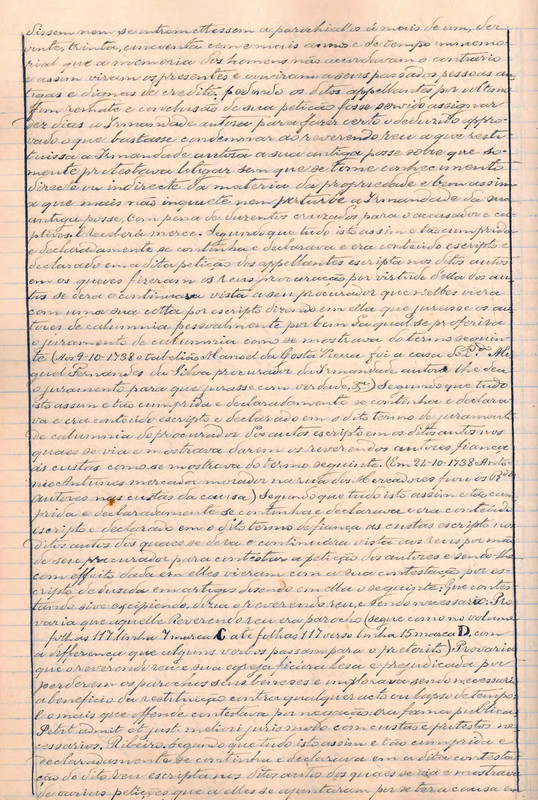 dissem nem se intromettessem a parochial-os á mais de um, dez
vinte, trinta, cincoenta cem e mais annos e de tempo immemo-
rial que a memoria dos homens não accordavam o contrario
e assim viram os presentes e ouviram a seus passados pessoas an-
tigas e dignas de credito; pedindo os ditos appellantes por ultimo
fim remate e conclusão de sua petição fosse servido assignar
dez dias a Irmandade autora para fazer certo o deduzido appro-
vado o que bastasse condemnar ao reverendo reu a que resti-
tuissa a Irmandade autora a sua antiga posse sobre que so-
mente protestava litigar sem que se tome conhecimento
directe ou indirecte da materia da propriedade e bem assim
a que mais não inquiete nem perturbe a Irmandade da sua
antiga posse, com pena de duzentos cruzados para o accusador e ca-
ptivos. E receberá mercê. Segundo que tudo isto assim e tão cumprida
e declaradamente se continha e declarava e era contiudo escripto e
declarado em a dita petição dos appellantes escripta nos ditos autos
em os quaes fizeram os reus procuração por virtude d'ella dos au-
tos se dera e continuara vista a seu procurador que n'elles viera
com uma sua cotta por escripto dizendo em ella que jurasse os au-
tores de calumnia pessoalmente por bem da qual se proferira
o juramento de calumnia como se mostrava do termo seguin-
te (Aos 9-10-1738 o tabelião Manoel da Costa Vieira foi a casa do Rdo. Mi-
guel Fernandes da Silva procurador da Irmandade autora lhe deu
o juramento para que jurasse com verdade, etc.) Segundo que tudo
isto assim e tão cumprida e declaradamente se continha e declara-
va e era contiudo escripto e declarado em o dito termo de juramento
de calumnia do procurador dos autos escripto em os ditos autos nos
quaes se via e mostrava darem os reverendos autores fiança
ás custas como se mostrava do termo seguinte. (Em 21-10-1738 Anto-
nio Antunes mercador morador na rua dos Mercadores fiou os Rdos
autores nas custas da causa) Segundo que tudo isto assim e tão cum-
prida e declaradamente se continha e declarava e era contiudo
escripto e declarado em o dito termo de fiança ás custas escripto nos
ditos autos dos quaes se dera e continuara vista aos reus por mão
de seu procurador para contestar a petição dos autores e sendo-lhe
com effeito dada em elles vieram com a sua contestação por es-
cripto deduzida em artigos dizendo em ella o seguinte: Que contes-
tando sive excipiendo, dizia o reverendo reu, e sendo necessario: Pro-
varia que aquelle Reverendo reu era parocho (segue como no volume
folhas 117 linha 7 marca C até folhas 117 verso linha 15 marca D, com
a differença que alguns verbos passam para o preterito). Provaria
que o reverendo reu e sua egreja ficaria lesa e prejudicada por
perderem os parochos seus benesses e implorava sendo necessario
a beneficio da restituição contra qualquer acto ou lapso de tempo,
e o mais que offende contestava por negação. Era fama publica.
Petit admitti et just. meliori juris modo com custas e protestos ne-
cessarios. Ribeiro. Segundo que tudo isto assim e tão cumprida e
declaradamente se continha e declarava em a dita contesta-
ção do dito reu escripta nos ditos autos dos quaes se via e mostrava